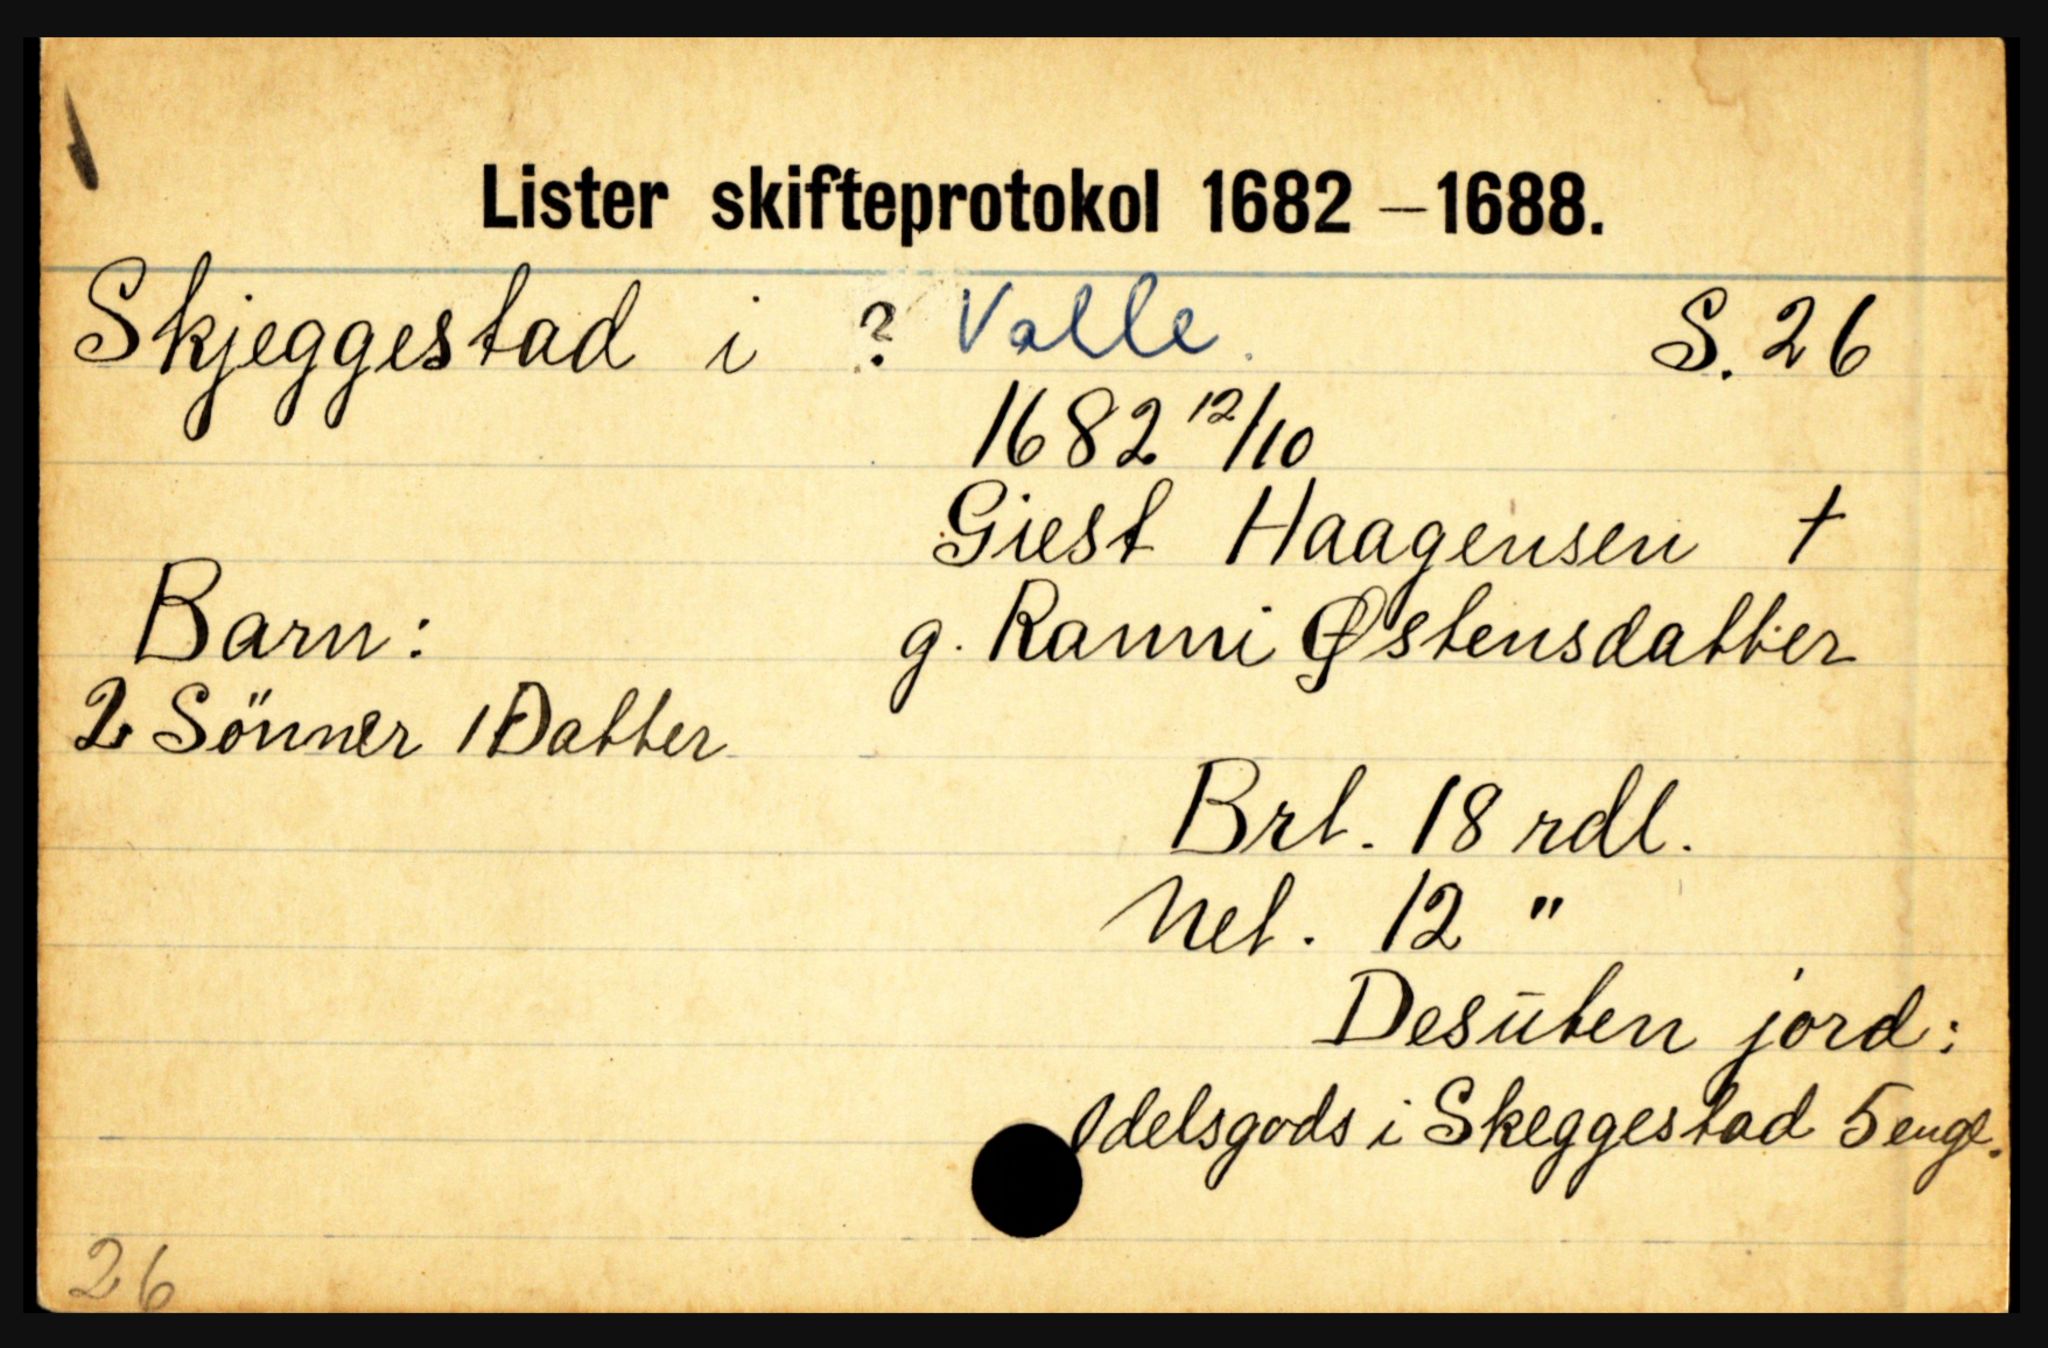 Lister skifteprotokol 1682 – 1688.
Skjeggestad i ? Valle. S. 26
1682 12/10
Giest Haagensen †
Barn: g. Ranni Østensdatter
2 Sönner 1 Datter
Brt. 18 rdl.
Net. 12 "
Desūten jord:
Odelsgods i Skeggestad 5 engl.
26